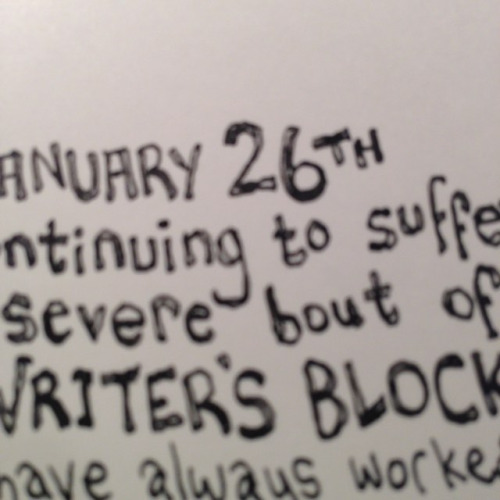 ANUARY 26TH
ntinuing to suffe
severe bout of
WRITER'S BLOCK
have always worke